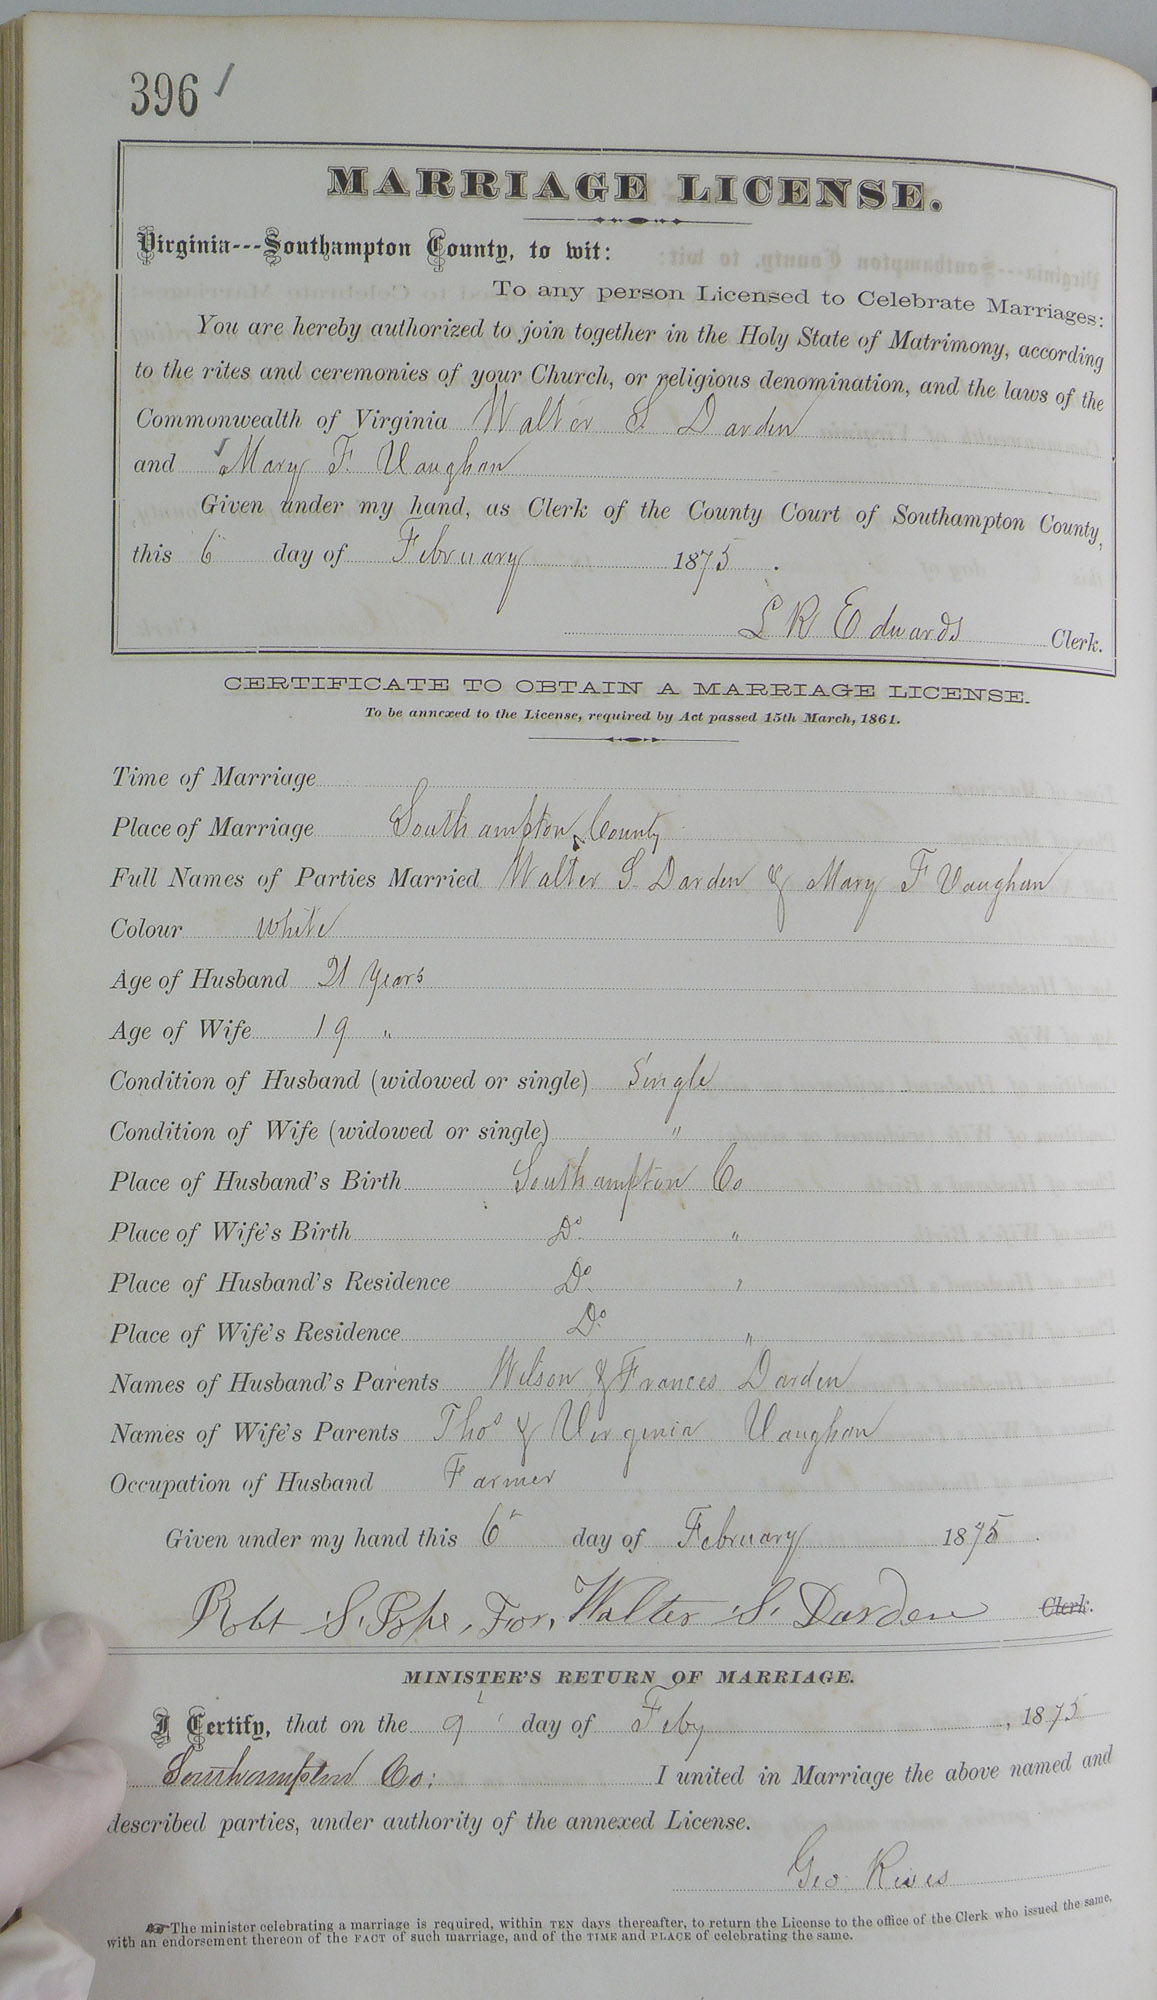 396
MARRIAGE LICENSE.
Virginia---Southampton County, to wit:
To any person Licensed to Celebrate Marriages:
You are hereby authorized to join together in the Holy State of Matrimony, according
to the rites and ceremonies of your Church, or religious denomination, and the laws of the
Commonwealth of Virginia Walter S. Darden
and Mary F. Vaughan
Given under my hand, as Clerk of the County Court of Southampton County,
this 6 day of February 1875.
L R Edwards Clerk.
CERTIFICATE TO OBTAIN A MARRIAGE LICENSE.
To be annexed to the License, required by Act passed 15th March, 1861.
Time of Marriage
Place of Marriage Southampton County
Full Names of Parties Married Walter S. Darden & Mary F Vaughan
Colour White
Age of Husband 21 Years
Age of Wife 19 "
Condition of Husband (widowed or single) Single
Condition of Wife (widowed or single) "
Place of Husband's Birth Southampton Co
Place of Wife's Birth Do "
Place of Husband's Residence Do "
Place of Wife's Residence Do "
Names of Husband's Parents Wilson & Frances Darden
Names of Wife's Parents Thos & Virginia Vaughan
Occupation of Husband Farmer
Given under my hand this 6" day of February 1875.
Robt S. Pope, For, Walter S. Darden Clerk.
MINISTER'S RETURN OF MARRIAGE.
I Certify, that on the 9 day of Feby, 1875
Southampton Co: I united in Marriage the above named and
described parties, under authority of the annexed License.
Geo Rives
☞ The minister celebrating a marriage is required, within TEN days thereafter, to return the License to the office of the Clerk who issued the same.
with an endorsement thereon of the FACT of such marriage, and of the TIME and PLACE of celebrating the same.